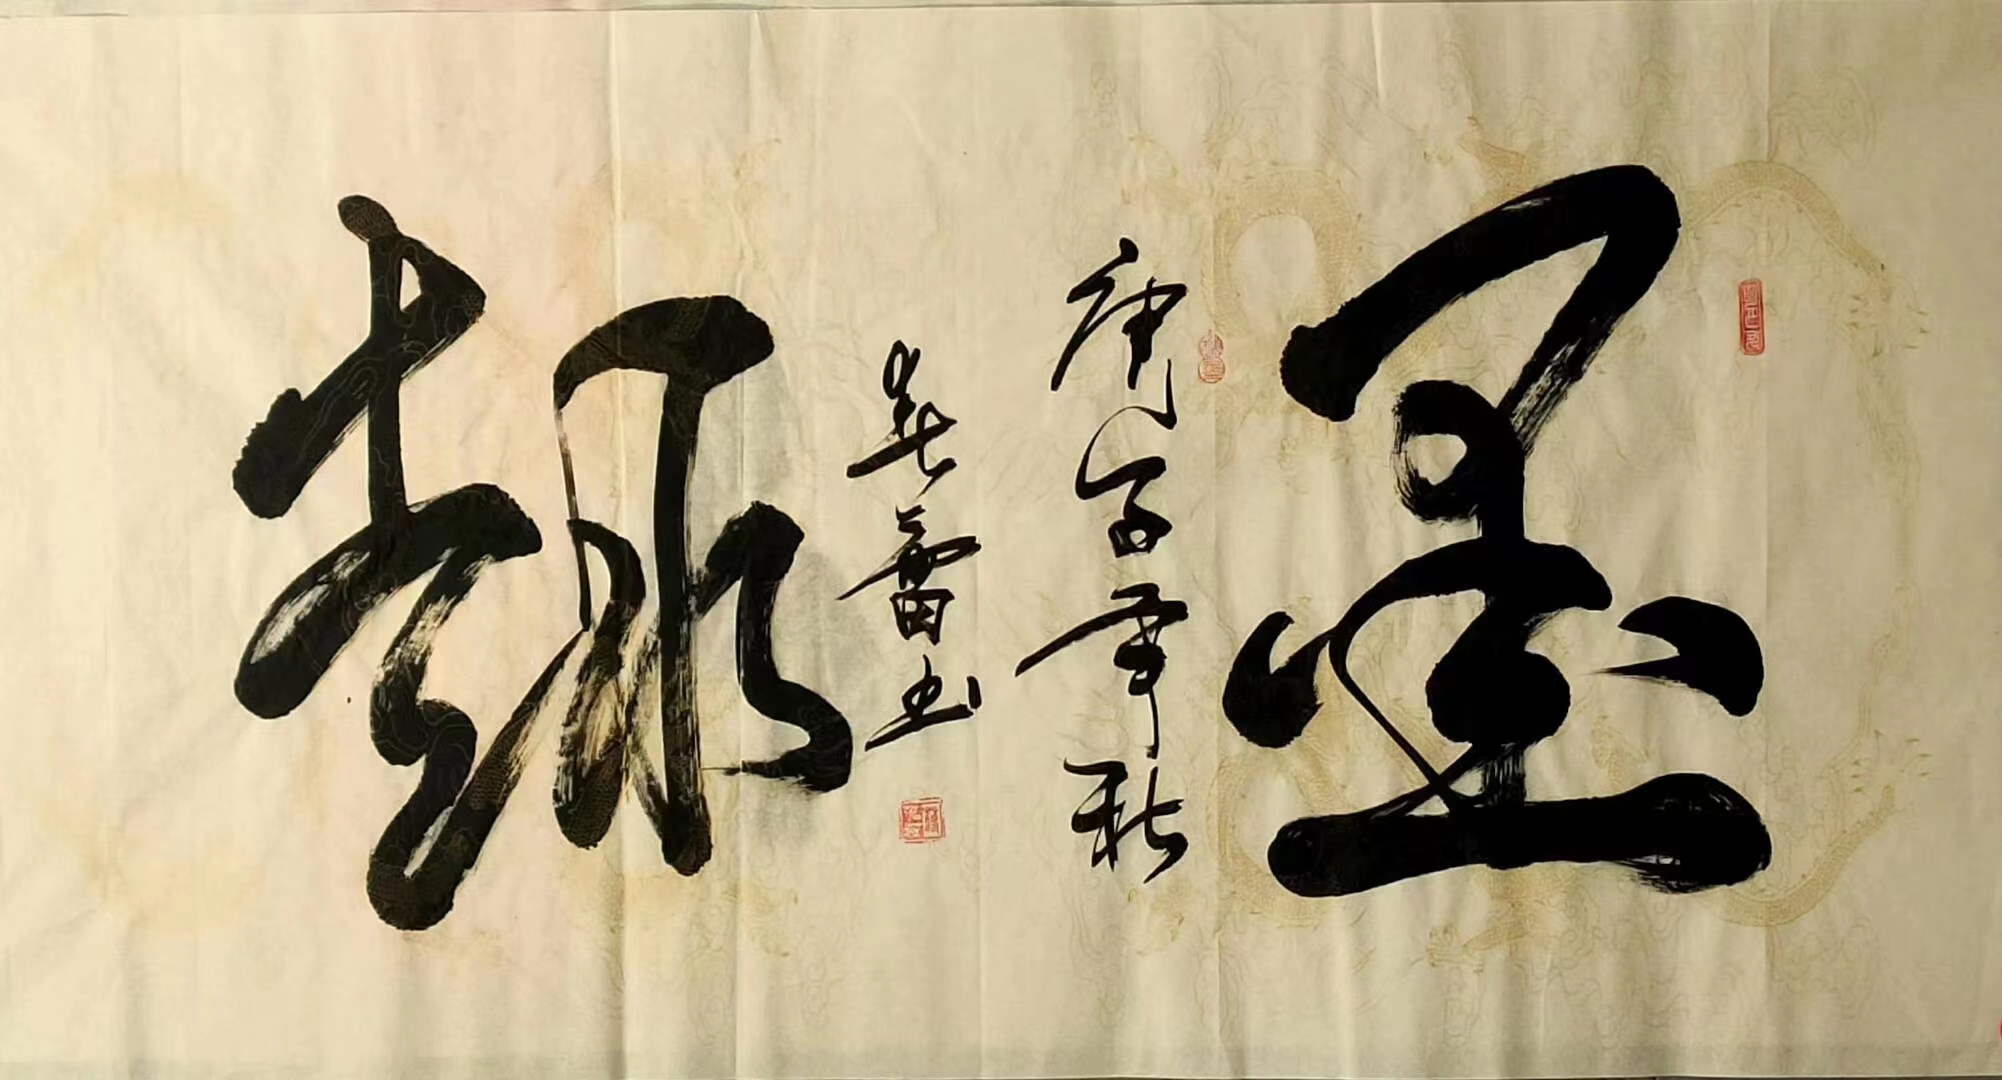 墨趣
庚子年秋
春蕾书